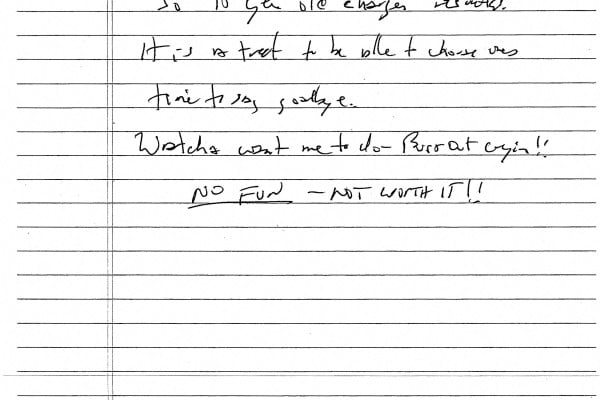 So 10 yr old charges
It is a treat to be able to choose ones
time to say goodbye.
Watcha want me to do - Burst out cryin!!
NO FUN - NOT WORTH IT!!